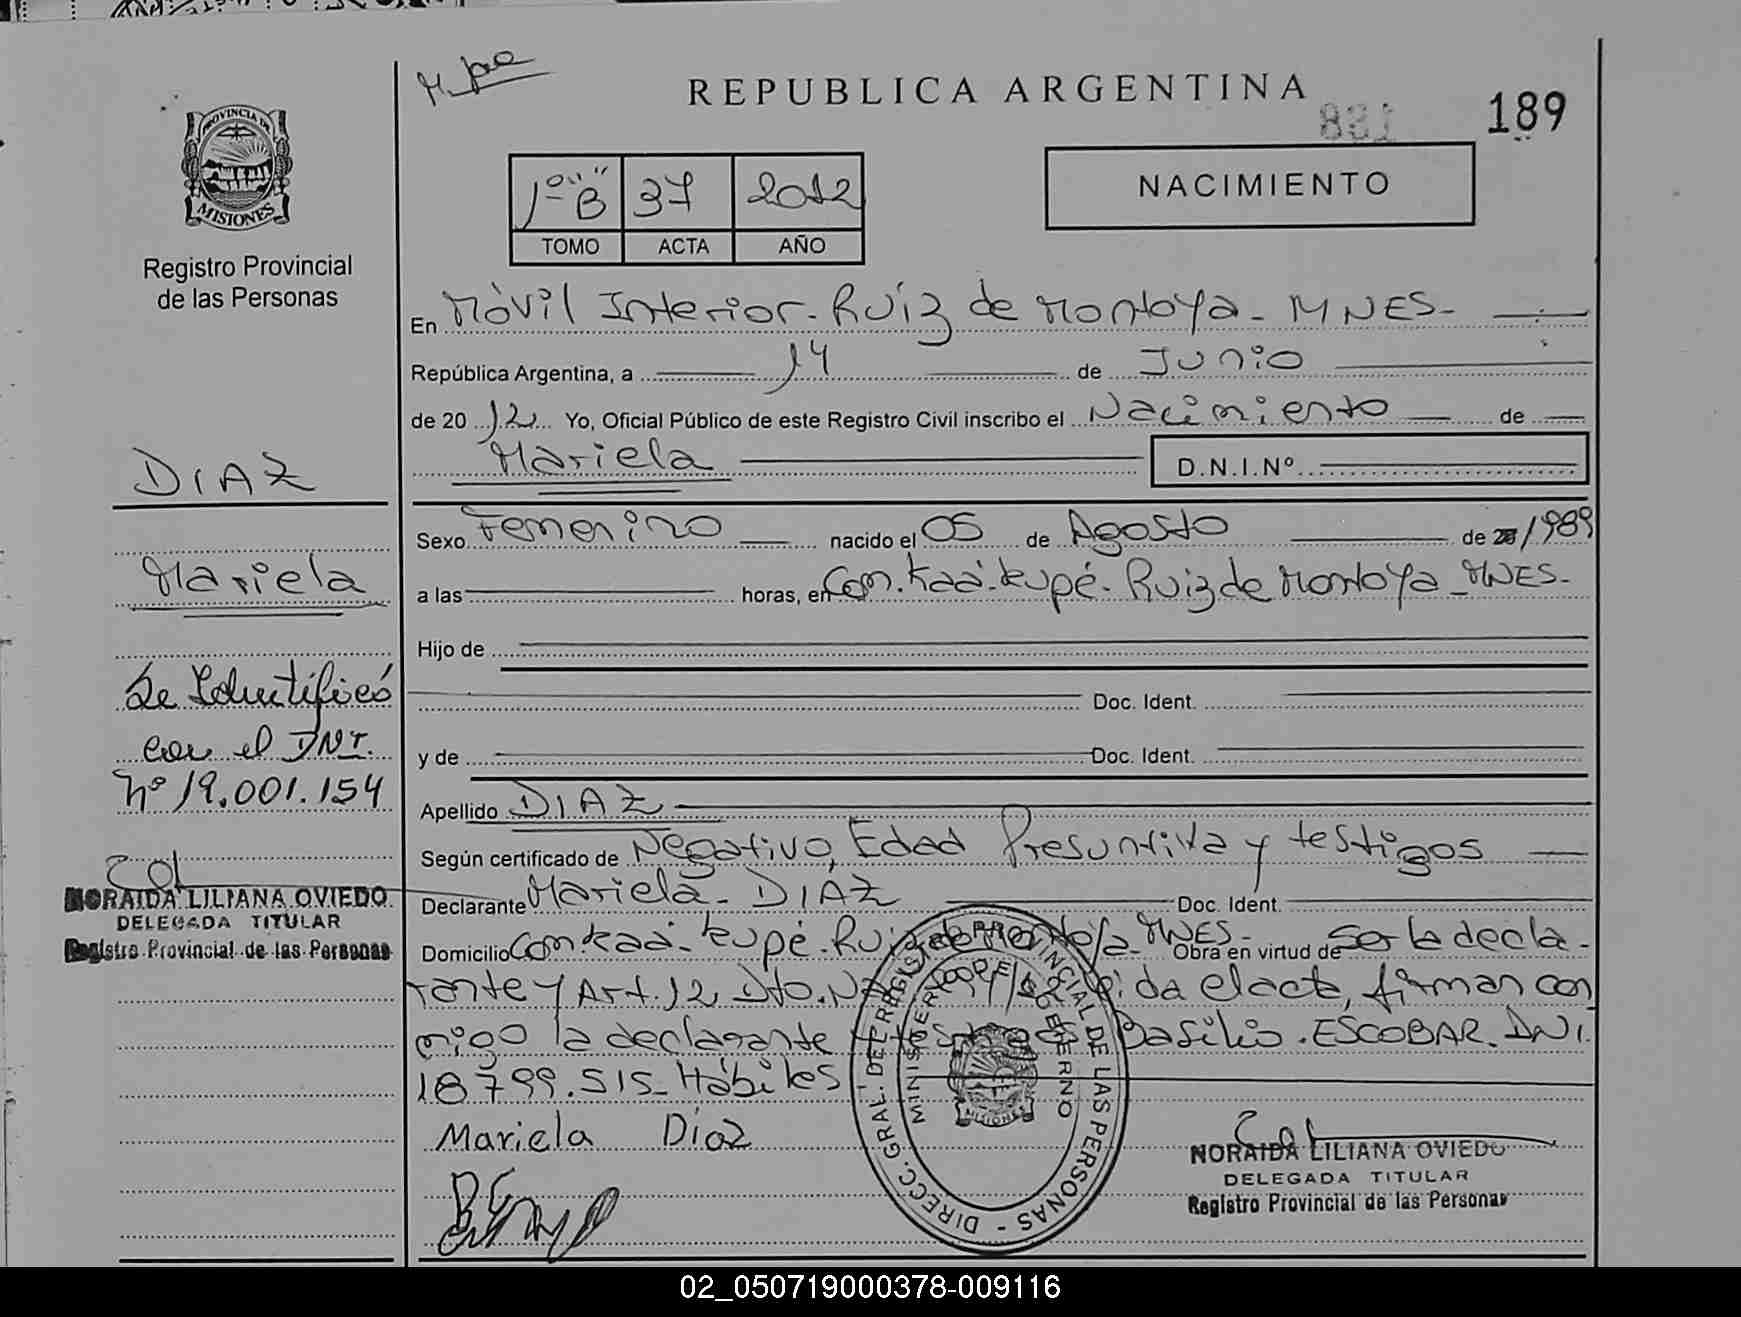 REPUBLICA ARGENTINA
881 189
PROVINCIA DE MISIONES
Registro Provincial
de las Personas
1º "B" 37 2012
TOMO ACTA AÑO
NACIMIENTO
En Móvil Interior - Ruiz de Montoya - MNES -
República Argentina, a 14 de Junio
de 2012 Yo, Oficial Público de este Registro Civil inscribo el Nacimiento de
Mariela D.N.I.Nº
Sexo Femenino nacido el 05 de Agosto de 1989
a las horas, en Com. Kaá-Kupé - Ruiz de Montoya - MNES -
Hijo de
Doc. Ident.
y de Doc. Ident.
Apellido DIAZ
Según certificado de Negativo, Edad Presuntiva y testigos
Declarante Mariela - DIAZ Doc. Ident.
Domicilio Com Kaá-Kupé - Ruiz de Montoya - MNES - Obra en virtud de Ser la decla-
rante y Art. 12 Dto. el acta, firman con
migo la declarante Basilio . ESCOBAR . DNI.
18799.515 - Hábiles
Mariela Díaz
NORAIDA LILIANA OVIEDO
DELEGADA TITULAR
Registro Provincial de las Personas
DIRECC. GRAL. DEL REGISTRO PROVINCIAL DE LAS PERSONAS -
MINISTERIO DE GOBIERNO
MISIONES
DIAZ
Mariela
Se Identificó
con el DNI.
Nº 19.001.154
NORAIDA LILIANA OVIEDO
DELEGADA TITULAR
Registro Provincial de las Personas
02_050719000378-009116